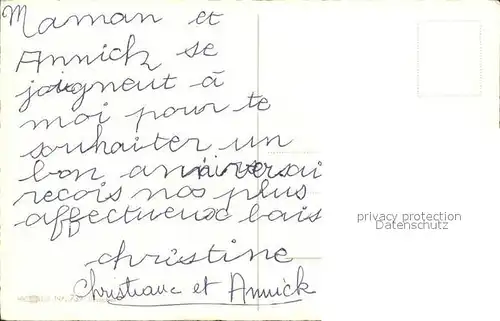 Maman et
Annick se
joignent à
moi pour te
souhaiter un
bon anniversai
recois nos plus
affectueux bais
christine
Christiane et Annick
privacy protection
Datenschutz